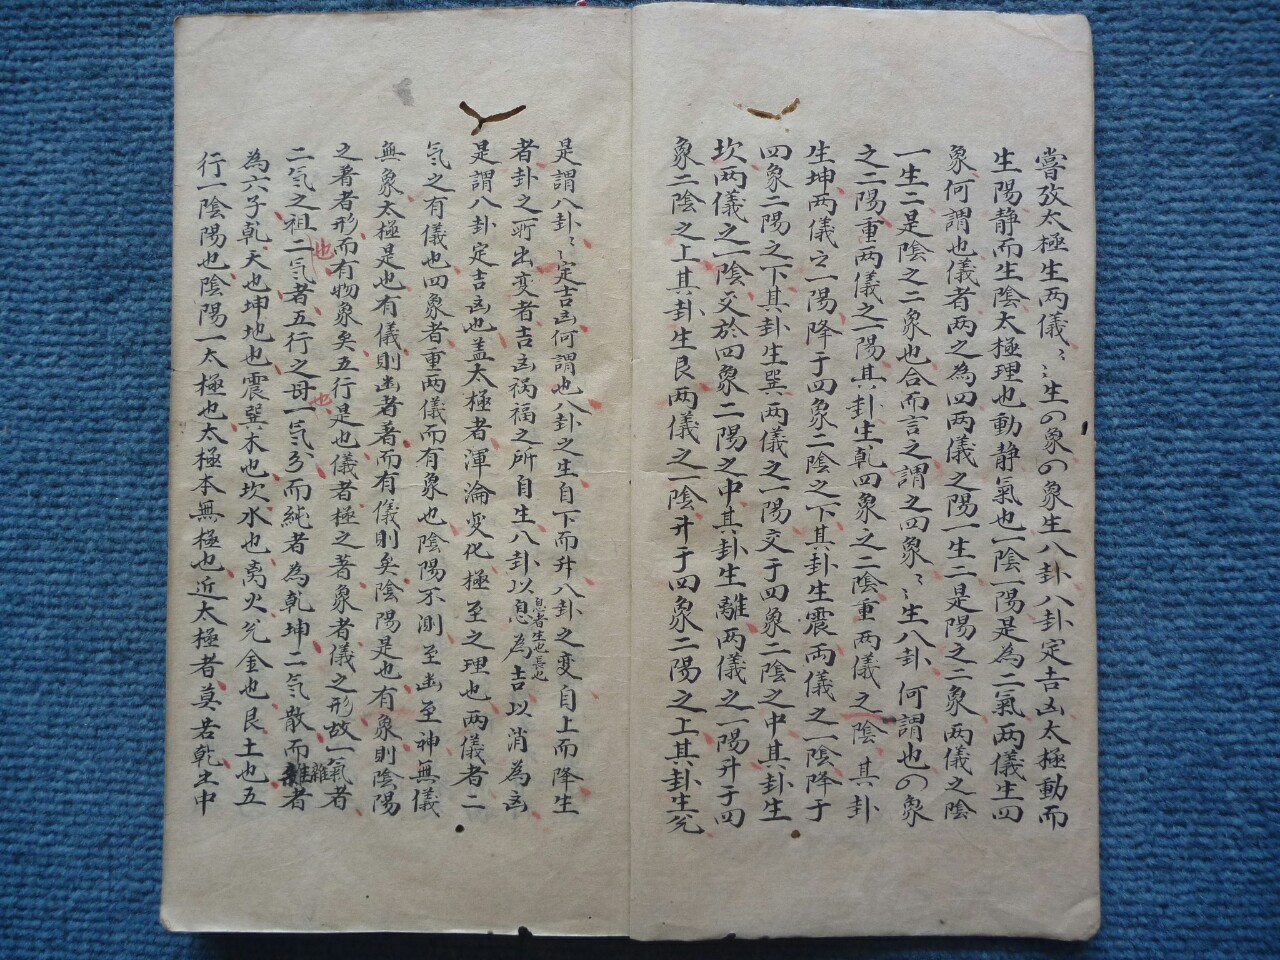 嘗攷太極生两儀〻生の象の象生八卦八卦定吉凶太極動而
生陽静而生陰太極理也動静氣也一陰一陽是為二氣两儀生四
象何謂也儀者两之為四两儀之陽一生二是陽之二象两儀之陰
一生二是陰之二象也合而言之謂之四象〻生八卦何謂也の象
之二陽重两儀之一陽其卦生乾四象之二陰重两儀之陰其卦
生坤两儀之一陽降于四象二陰之下其卦生震两儀之一陰降于
四象二陽之下其卦生巽两儀之一陽交于四象二陰之中其卦生
坎两儀之一陰交於四象二陽之中其卦生離两儀之一陽升于四
象二陰之上其卦生艮两儀之一陰升于四象二陽之上其卦生兊
是謂八卦〻定吉凶何謂也八卦之生自下而升八卦之变自上而降生
者卦之所出变者吉凶祸福之所自生八卦以息息者生也長也為吉以消為凶
是謂八卦定吉凶也盖太極者渾淪变化極至之理也两儀者二
氣之有儀也四象者重两儀而有象也陰陽不測至幽至神無儀
無象太極是也有儀則幽者著而有儀則矣陰陽是也有象則陰陽
之著者形而有物象矣五行是也儀者極之著象者儀之形故一氣者
二氣之祖也二氣者五行之母也一氣分而純者為乾坤二气散而雜者
為六子乾天也坤地也震巽木也坎水也离火兊金也艮土也五
行一陰陽也陰陽一太極也太極本無極也近太極者莫若乾坐中